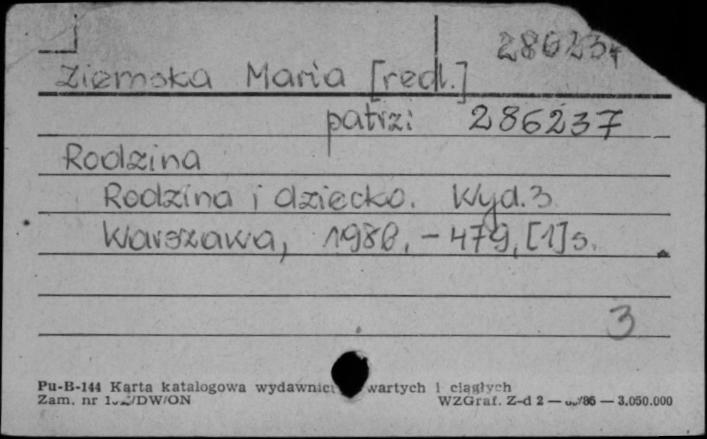 286237
Ziemska Maria [red.]
patrz: 286237
Rodzina
Rodzina i dziecko. Wyd. 3
Warszawa, 1986. - 479, [1] s.
3
Pu-B-144 Karta katalogowa wartych i ciągłych
Zam. nr WZGraf. Z-d 2 — — 3.050.000